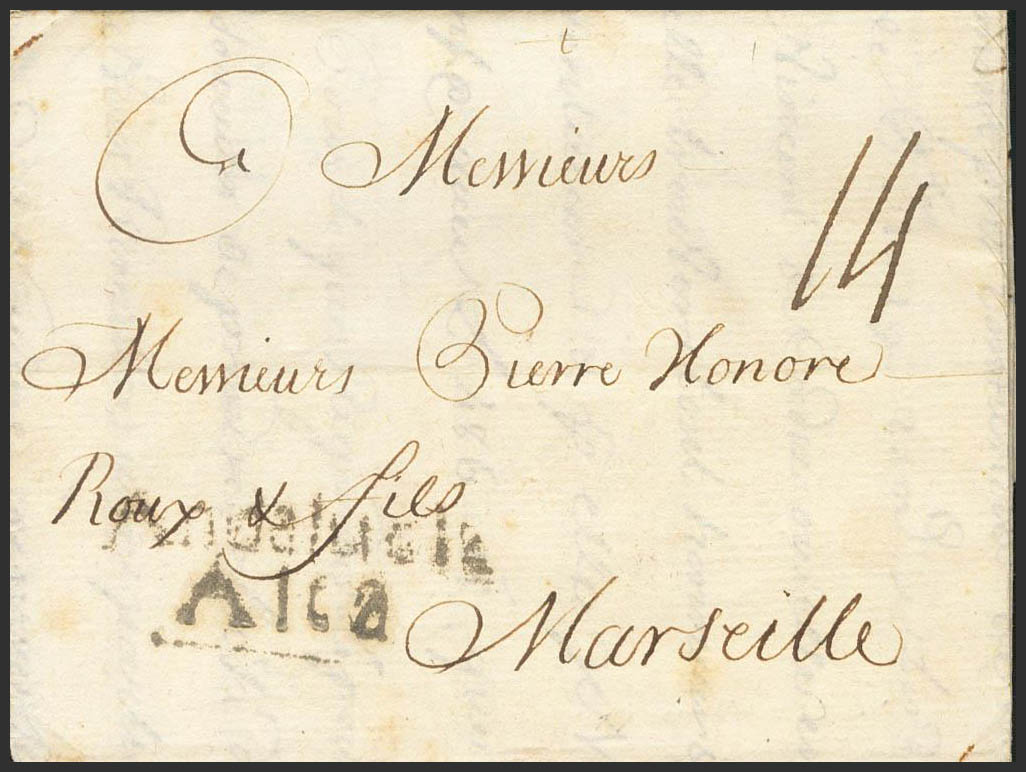 A Messieurs
14
Messieurs Pierre Honore
Roux & fils
Andalucia
Alta
Marseille